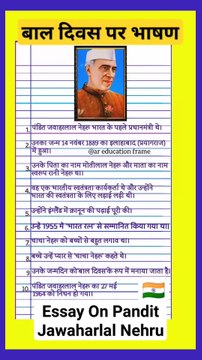 बाल दिवस पर भाषण
1. पंडित जवाहरलाल नेहरू भारत के पहले प्रधानमंत्री थे।
2. उनका जन्म 14 नवंबर 1889 को इलाहाबाद (प्रयागराज)
में हुआ।
@ar education frame
3. उनके पिता का नाम मोतीलाल नेहरू और माता का नाम
स्वरूप रानी नेहरू था।
4. वह एक भारतीय स्वतंत्रता कार्यकर्ता थे और उन्होंने
भारत की स्वतंत्रता के लिए लड़ाई लड़ी थी।
5. उन्होंने इंग्लैंड में क़ानून की पढ़ाई पूरी की।
6. उन्हें 1955 में 'भारत रत्न' से सम्मानित किया गया था।
7. चाचा नेहरू को बच्चों से बहुत लगाव था।
8. बच्चे उन्हें प्यार से 'चाचा नेहरू' कहते थे।
9. उनके जन्मदिन को बाल दिवस के रूप में मनाया जाता है।
10. पंडित जवाहरलाल नेहरू का 27 मई
1964 को निधन हो गया।
Essay On Pandit
Jawaharlal Nehru